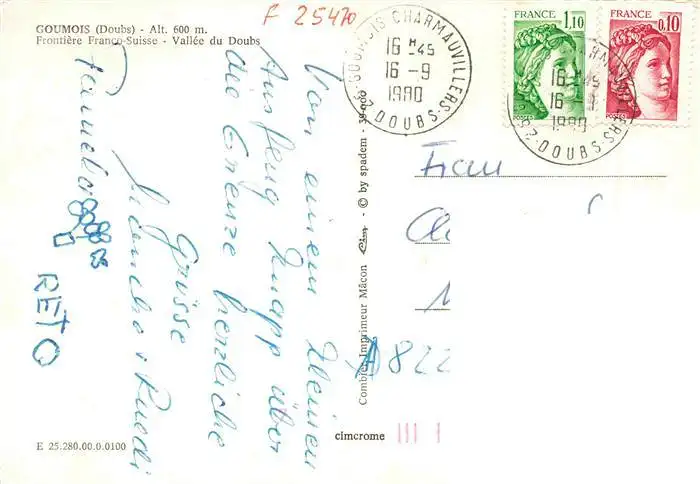 GOUMOIS (Doubs) - Alt. 600 m.
Frontière Franco-Suisse - Vallée du Doubs
F 25470
GOUMOIS CHARMAUVILLERS
16 H 45
16 -9
1980
25 DOUBS
FRANCE
1,10
POSTES
FRANCE
0,10
POSTES
16 H 45
16 -9
1980
25 DOUBS
Von einem kleinen
Ausflug knapp über
die Grenze herzliche
Grüsse
Ruedi
RETO
Combier Imprimeur Mâcon
© by spadem - 39.000
Frau
A 822
E 25.280.00.0.0100
cimcrome